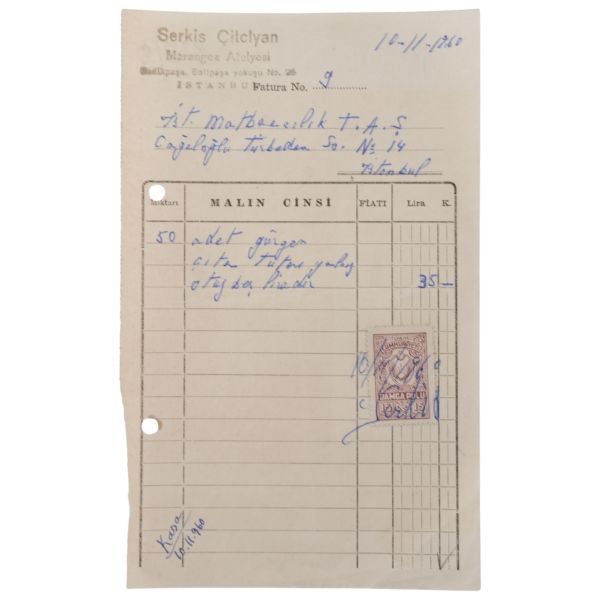 Serkis Çitciyan
Marangoz Atelyesi
Sailpaşa yokuşu No. 26
İSTANBUL
10-11-1960
Fatura No. 9
İst. Matbaacılık T.A.Ş
Cağaloğlu Türbedar So. No 14
İstanbul
Miktarı MALIN CİNSİ FİATI Lira K.
50 adet gürgen
çıta tutarı yalnız
otuz beş liradır 35 —
CUMHURİYETİ
10/11/960
DAMGA PULU
Kasa
10.11.960